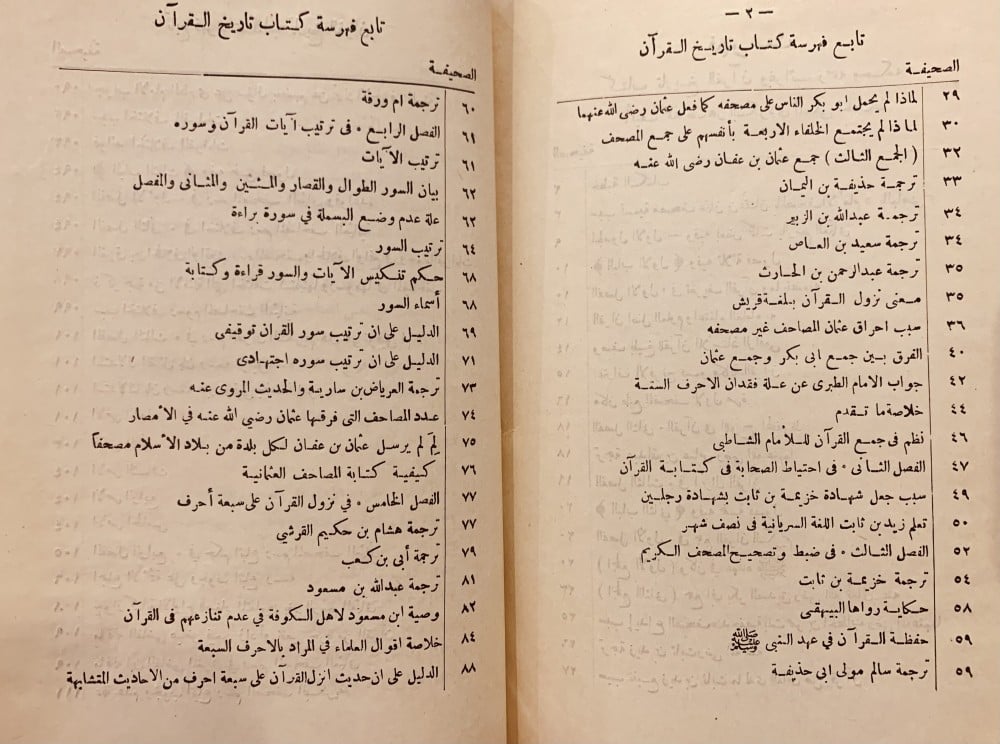 — ٢ —
تابع فهرسة كتاب تاريخ القرآن
الصحيفة
٢٩ لماذا لم يحمل ابو بكر الناس على مصحفه كما فعل عثمان رضى الله عنهما
٣٠ لماذا لم يجتمع الخلفاء الاربعة بأنفسهم على جمع المصحف
٣٢ ( الجمع الثالث ) جمع عثمان بن عفان رضى الله عنه
٣٣ ترجمة حذيفة بن اليمان
٣٤ ترجمة عبدالله بن الزبير
٣٤ ترجمة سعيد بن العاص
٣٥ ترجمة عبدالرحمن بن الحارث
٣٥ معنى نزول القرآن بلغة قريش
٣٦ سبب احراق عثمان المصاحف غير مصحفه
٤٠ الفرق بين جمع ابى بكر وجمع عثمان
٤٢ جواب الامام الطبرى عن علة فقدان الاحرف الستة
٤٤ خلاصة ما تقدم
٤٦ نظم فى جمع القرآن للامام الشاطبى
٤٧ الفصل الثانى ٠ فى احتياط الصحابة فى كتابة القرآن
٤٩ سبب جعل شهادة خزيمة بن ثابت بشهادة رجلين
٥٠ تعلم زيد بن ثابت اللغة السريانية فى نصف شهر
٥٢ الفصل الثالث ٠ فى ضبط وتصحيح المصحف الكريم
٥٤ ترجمة خزيمة بن ثابت
٥٨ حكاية رواها البيهقى
٥٩ حفظة القرآن في عهد النبى ﷺ
٥٩ ترجمة سالم مولى ابى حذيفة
تابع فهرسة كتاب تاريخ القرآن
الصحيفة
٦٠ ترجمة ام ورقة
٦١ الفصل الرابع ٠ فى ترتيب آيات القرآن وسوره
٦١ ترتيب الآيات
٦٢ بيان السور الطوال والقصار والمئين والمثانى والمفصل
٦٣ علة عدم وضع البسملة في سورة براءة
٦٤ ترتيب السور
٦٨ حكم تنكيس الآيات والسور قراءة وكتابة
٦٨ أسماء السور
٦٩ الدليل على ان ترتيب سور القران توقيفى
٧١ الدليل على ان ترتيب سوره اجتهادى
٧٣ ترجمة العرياض بن سارية والحديث المروى عنه
٧٤ عدد المصاحف التى فرقها عثمان رضي الله عنه في الأمصار
٧٥ لم لم يرسل عثمان بن عفان لكل بلدة من بلاد الأسلام مصحفاً
٧٦ كيفية كتابة المصاحف العثمانية
٧٧ الفصل الخامس ٠ فى نزول القرآن على سبعة أحرف
٧٧ ترجمة هشام بن حكيم القرشي
٧٩ ترجمة أبى بن كعب
٨١ ترجمة عبدالله بن مسعود
٨٢ وصية ابن مسعود لاهل الكوفة في عدم تنازعهم فى القرآن
٨٤ خلاصة اقوال العلماء في المراد بالاحرف السبعة
٨٨ الدليل على ان حديث انزل القرآن على سبعة احرف من الأحاديث المتشابهة